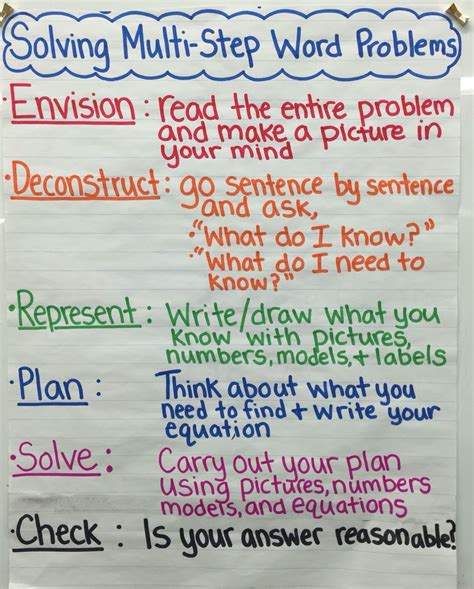 Solving Multi-Step Word Problems
·Envision : read the entire problem
and make a picture in
your mind
·Deconstruct: go sentence by sentence
and ask,
·"What do I know?"
·"What do I need to
know?"
·Represent : Write/draw what you
know with pictures,
numbers, models, + labels
·Plan : Think about what you
need to find + write your
equation
·Solve : Carry out your plan
using pictures, numbers
models, and equations
·Check : Is your answer reasonable?